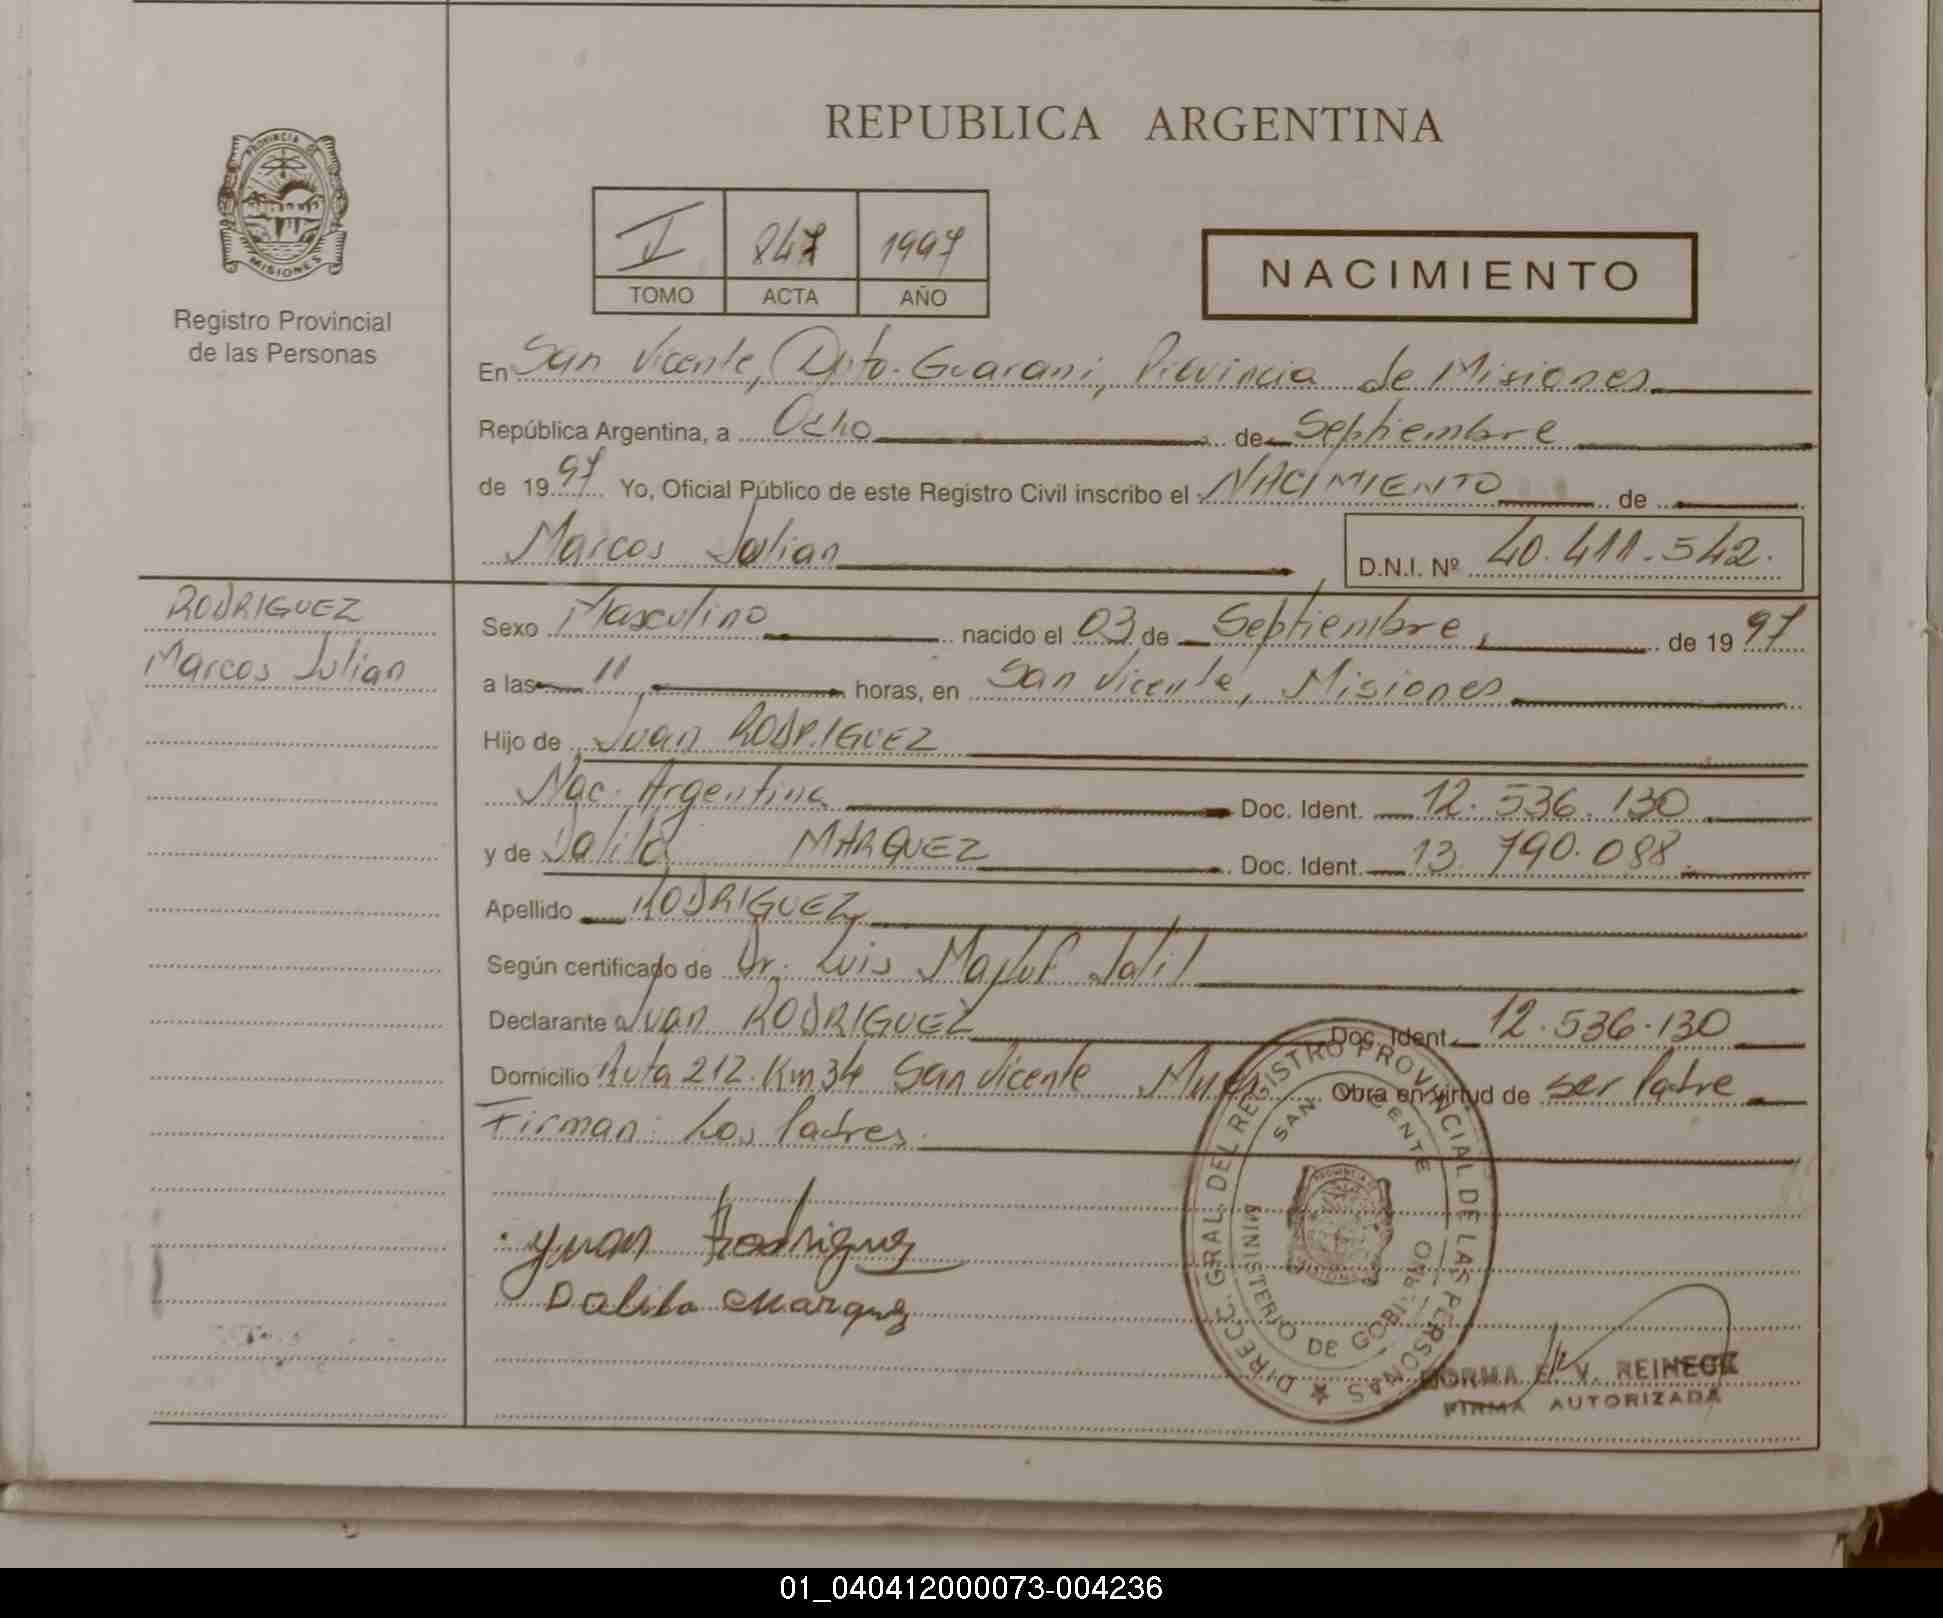 REPUBLICA ARGENTINA
PROVINCIA DE
MISIONES
Registro Provincial
de las Personas
I 847 1997
TOMO ACTA AÑO
NACIMIENTO
En San Vicente, Dpto. Guarani, Provincia de Misiones
República Argentina, a Ocho de Septiembre
de 1997 Yo, Oficial Público de este Registro Civil inscribo el NACIMIENTO de
Marcos Julian
D.N.I. Nº 40.411.542.
RODRIGUEZ
Marcos Julian
Sexo Masculino nacido el 03 de Septiembre, de 1997
a las 11 horas, en San Vicente, Misiones
Hijo de Juan RODRIGUEZ
Nac. Argentina Doc. Ident. 12.536.130
y de Dalila MARQUEZ Doc. Ident. 13.790.088
Apellido RODRIGUEZ
Según certificado de Dr. Luis Jalil
Declarante Juan RODRIGUEZ Doc. Ident. 12.536.130
Domicilio Ruta 212. Km 34 San Vicente Obra en virtud de ser Padre
Firman: Los Padres.
Juan Rodriguez
Dalila Marquez
DIRECC. GRAL. DEL REGISTRO PROVINCIAL DE LAS PERSONAS
SAN VICENTE
MINISTERIO DE GOBIERNO
NORMA E. V. REINECK
FIRMA AUTORIZADA
01_040412000073-004236